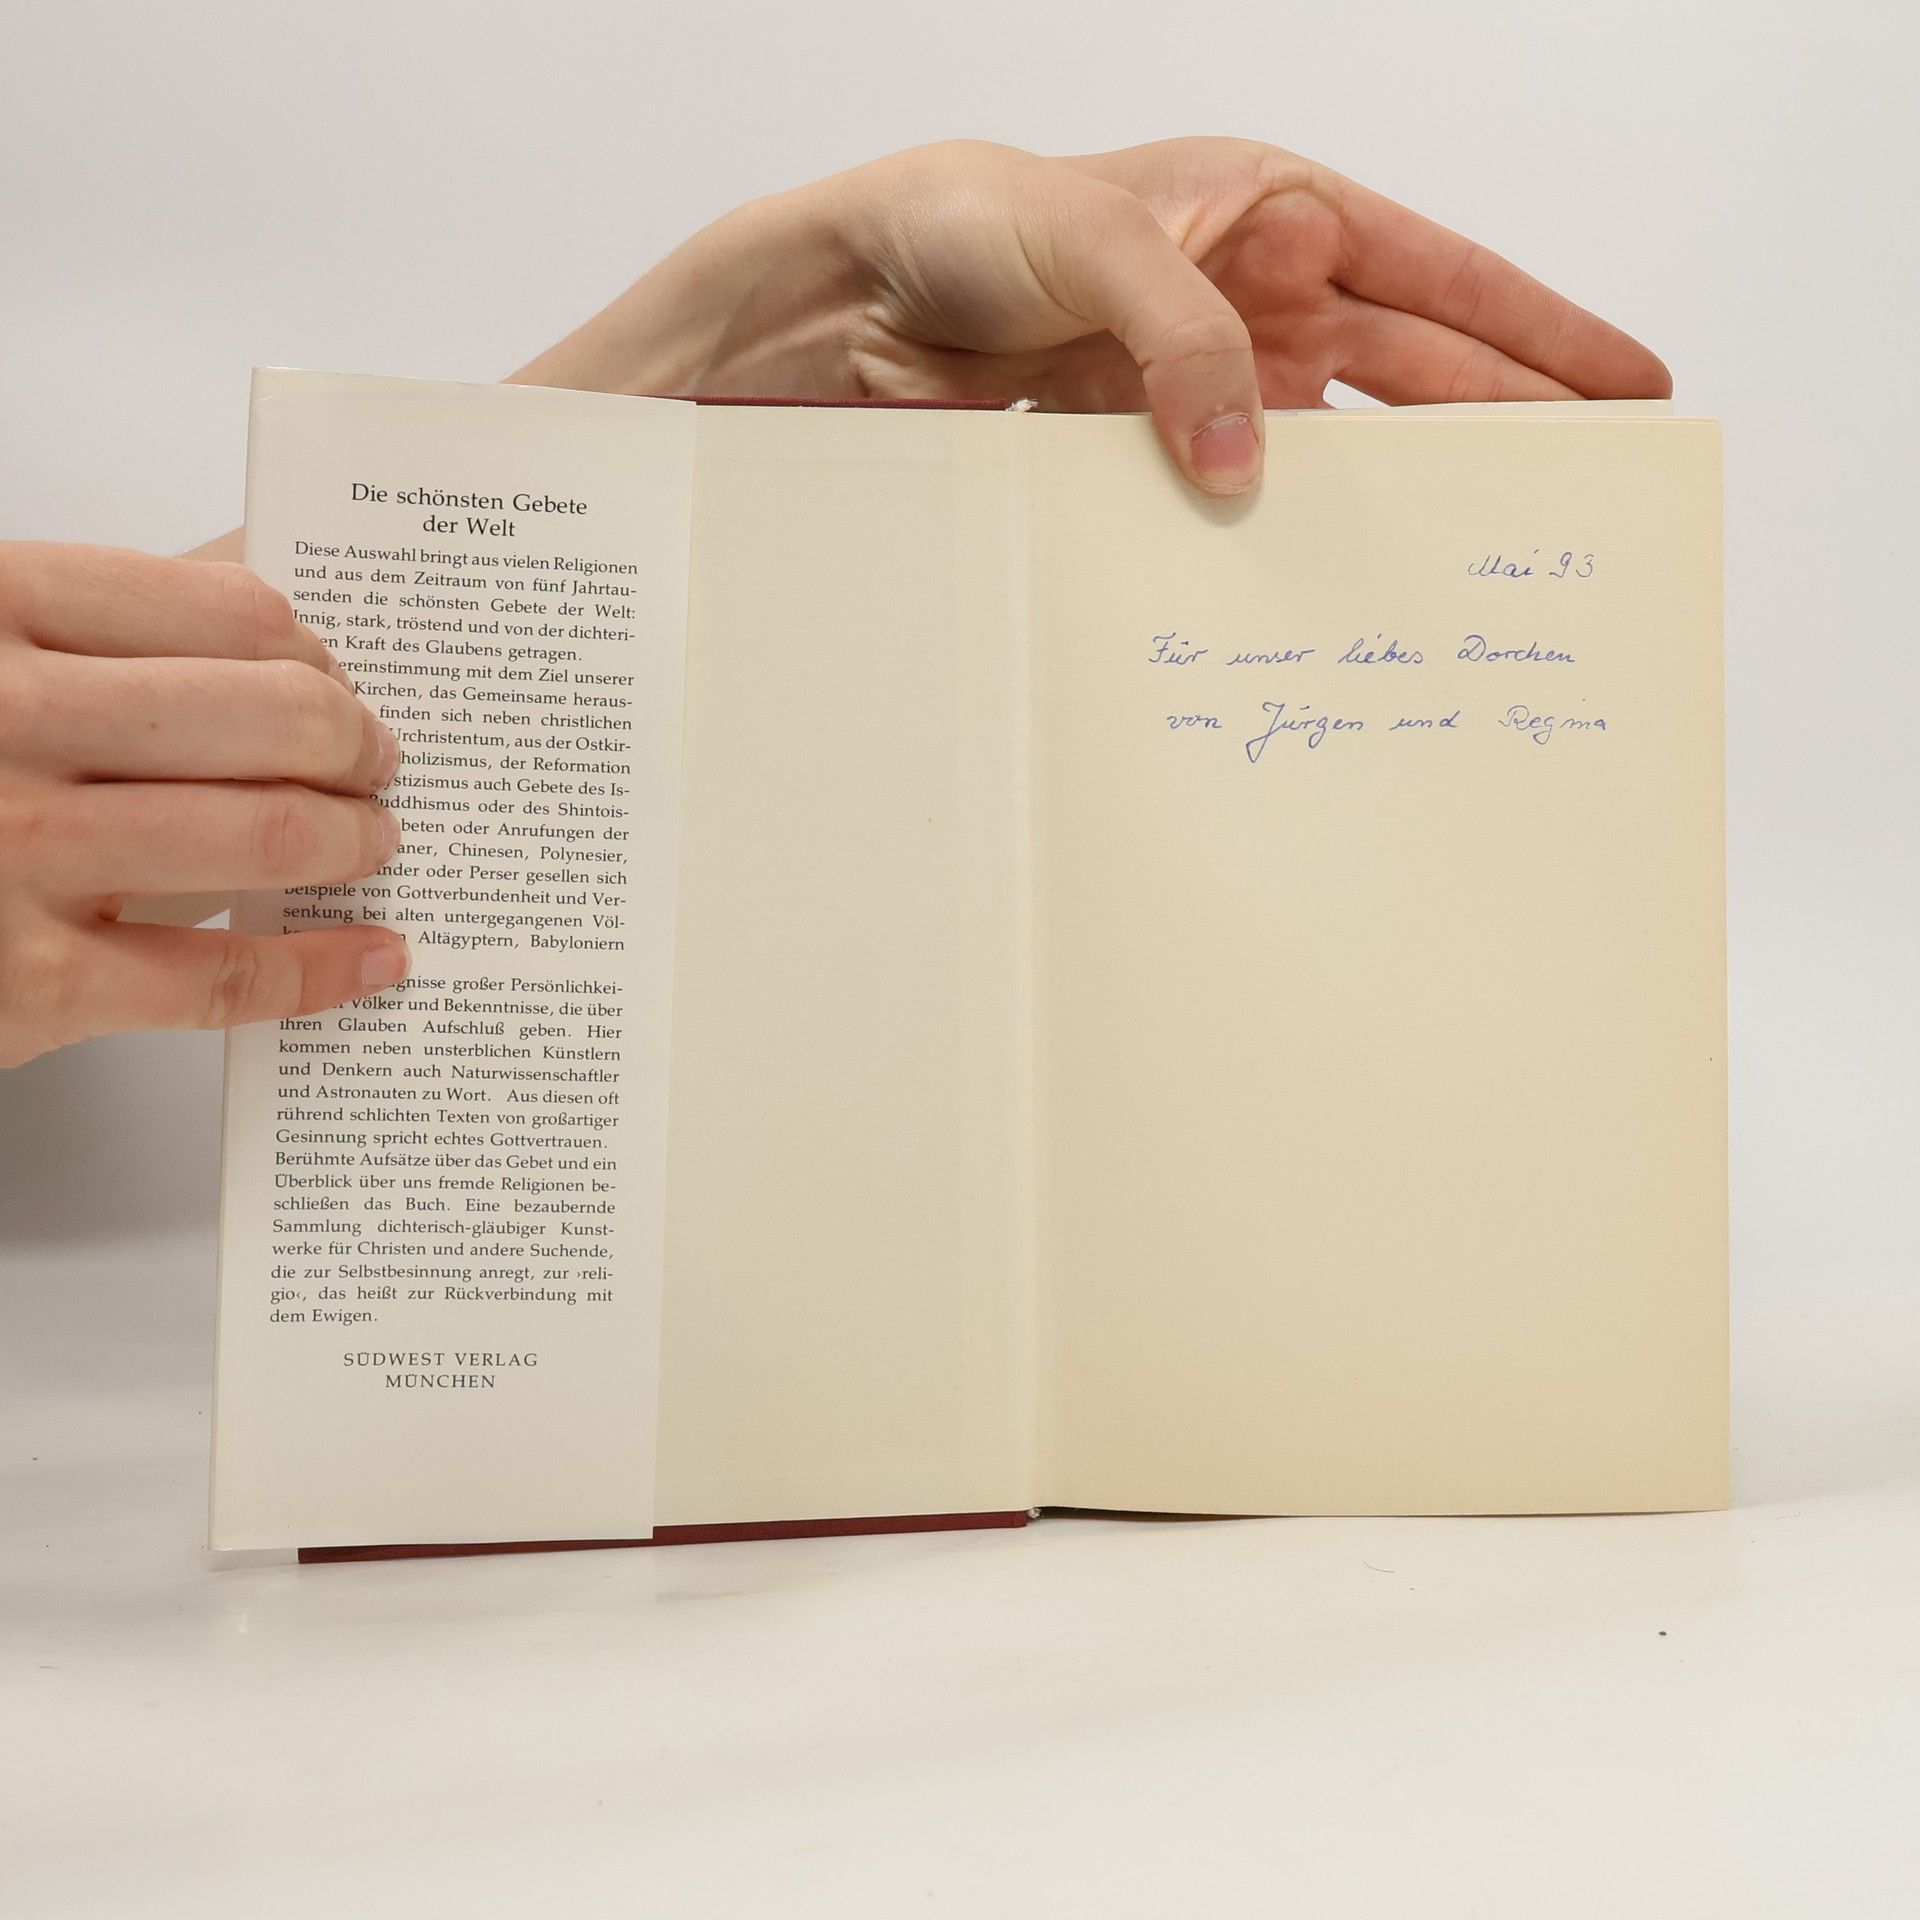 Die schönsten Gebete
der Welt
Diese Auswahl bringt aus vielen Religionen
und aus dem Zeitraum von fünf Jahrtau-
senden die schönsten Gebete der Welt:
Innig, stark, tröstend und von der dichteri-
en Kraft des Glaubens getragen.
ereinstimmung mit dem Ziel unserer
Kirchen, das Gemeinsame heraus-
finden sich neben christlichen
Urchristentum, aus der Ostkir-
holizismus, der Reformation
stizismus auch Gebete des Is-
Buddhismus oder des Shintois-
beten oder Anrufungen der
aner, Chinesen, Polynesier,
nder oder Perser gesellen sich
Beispiele von Gottverbundenheit und Ver-
senkung bei alten untergegangenen Völ-
Altägyptern, Babyloniern
gnisse großer Persönlichkei-
Völker und Bekenntnisse, die über
ihren Glauben Aufschluß geben. Hier
kommen neben unsterblichen Künstlern
und Denkern auch Naturwissenschaftler
und Astronauten zu Wort. Aus diesen oft
rührend schlichten Texten von großartiger
Gesinnung spricht echtes Gottvertrauen.
Berühmte Aufsätze über das Gebet und ein
Überblick über uns fremde Religionen be-
schließen das Buch. Eine bezaubernde
Sammlung dichterisch-gläubiger Kunst-
werke für Christen und andere Suchende,
die zur Selbstbesinnung anregt, zur ›reli-
gio‹, das heißt zur Rückverbindung mit
dem Ewigen.
SÜDWEST VERLAG
MÜNCHEN
Mai 93
Für unser liebes Dorchen
von Jürgen und Regina